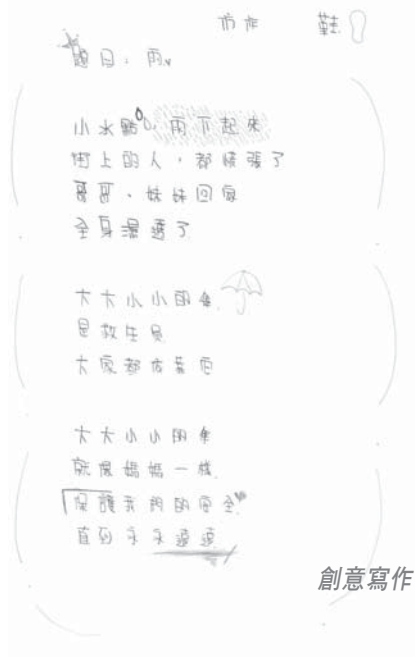 仿作 鞋
題目：雨
小水點，雨下起來
街上的人，都慌張了
哥哥、妹妹回家
全身濕透了
大大小小的傘
是救生員
大家都依著它
大大小小的傘
就像媽媽一樣
保護我們的安全
直到永永遠遠
創意寫作